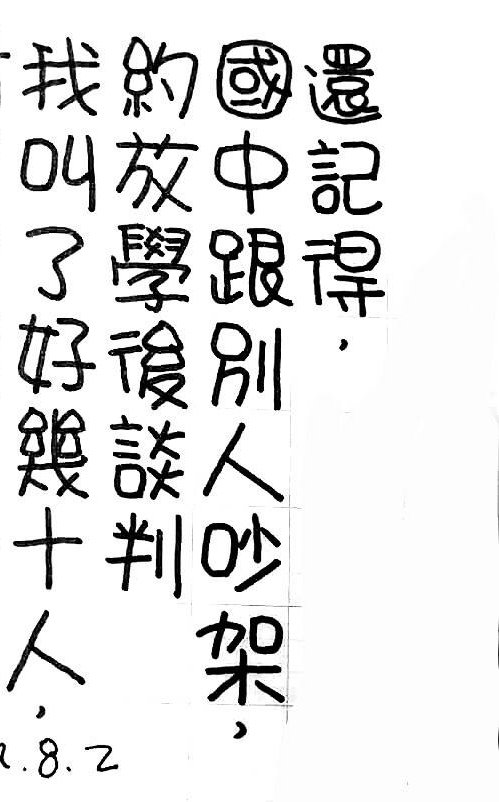 還記得，
國中跟別人吵架，
約放學後談判
我叫了好幾十人，
.8.2